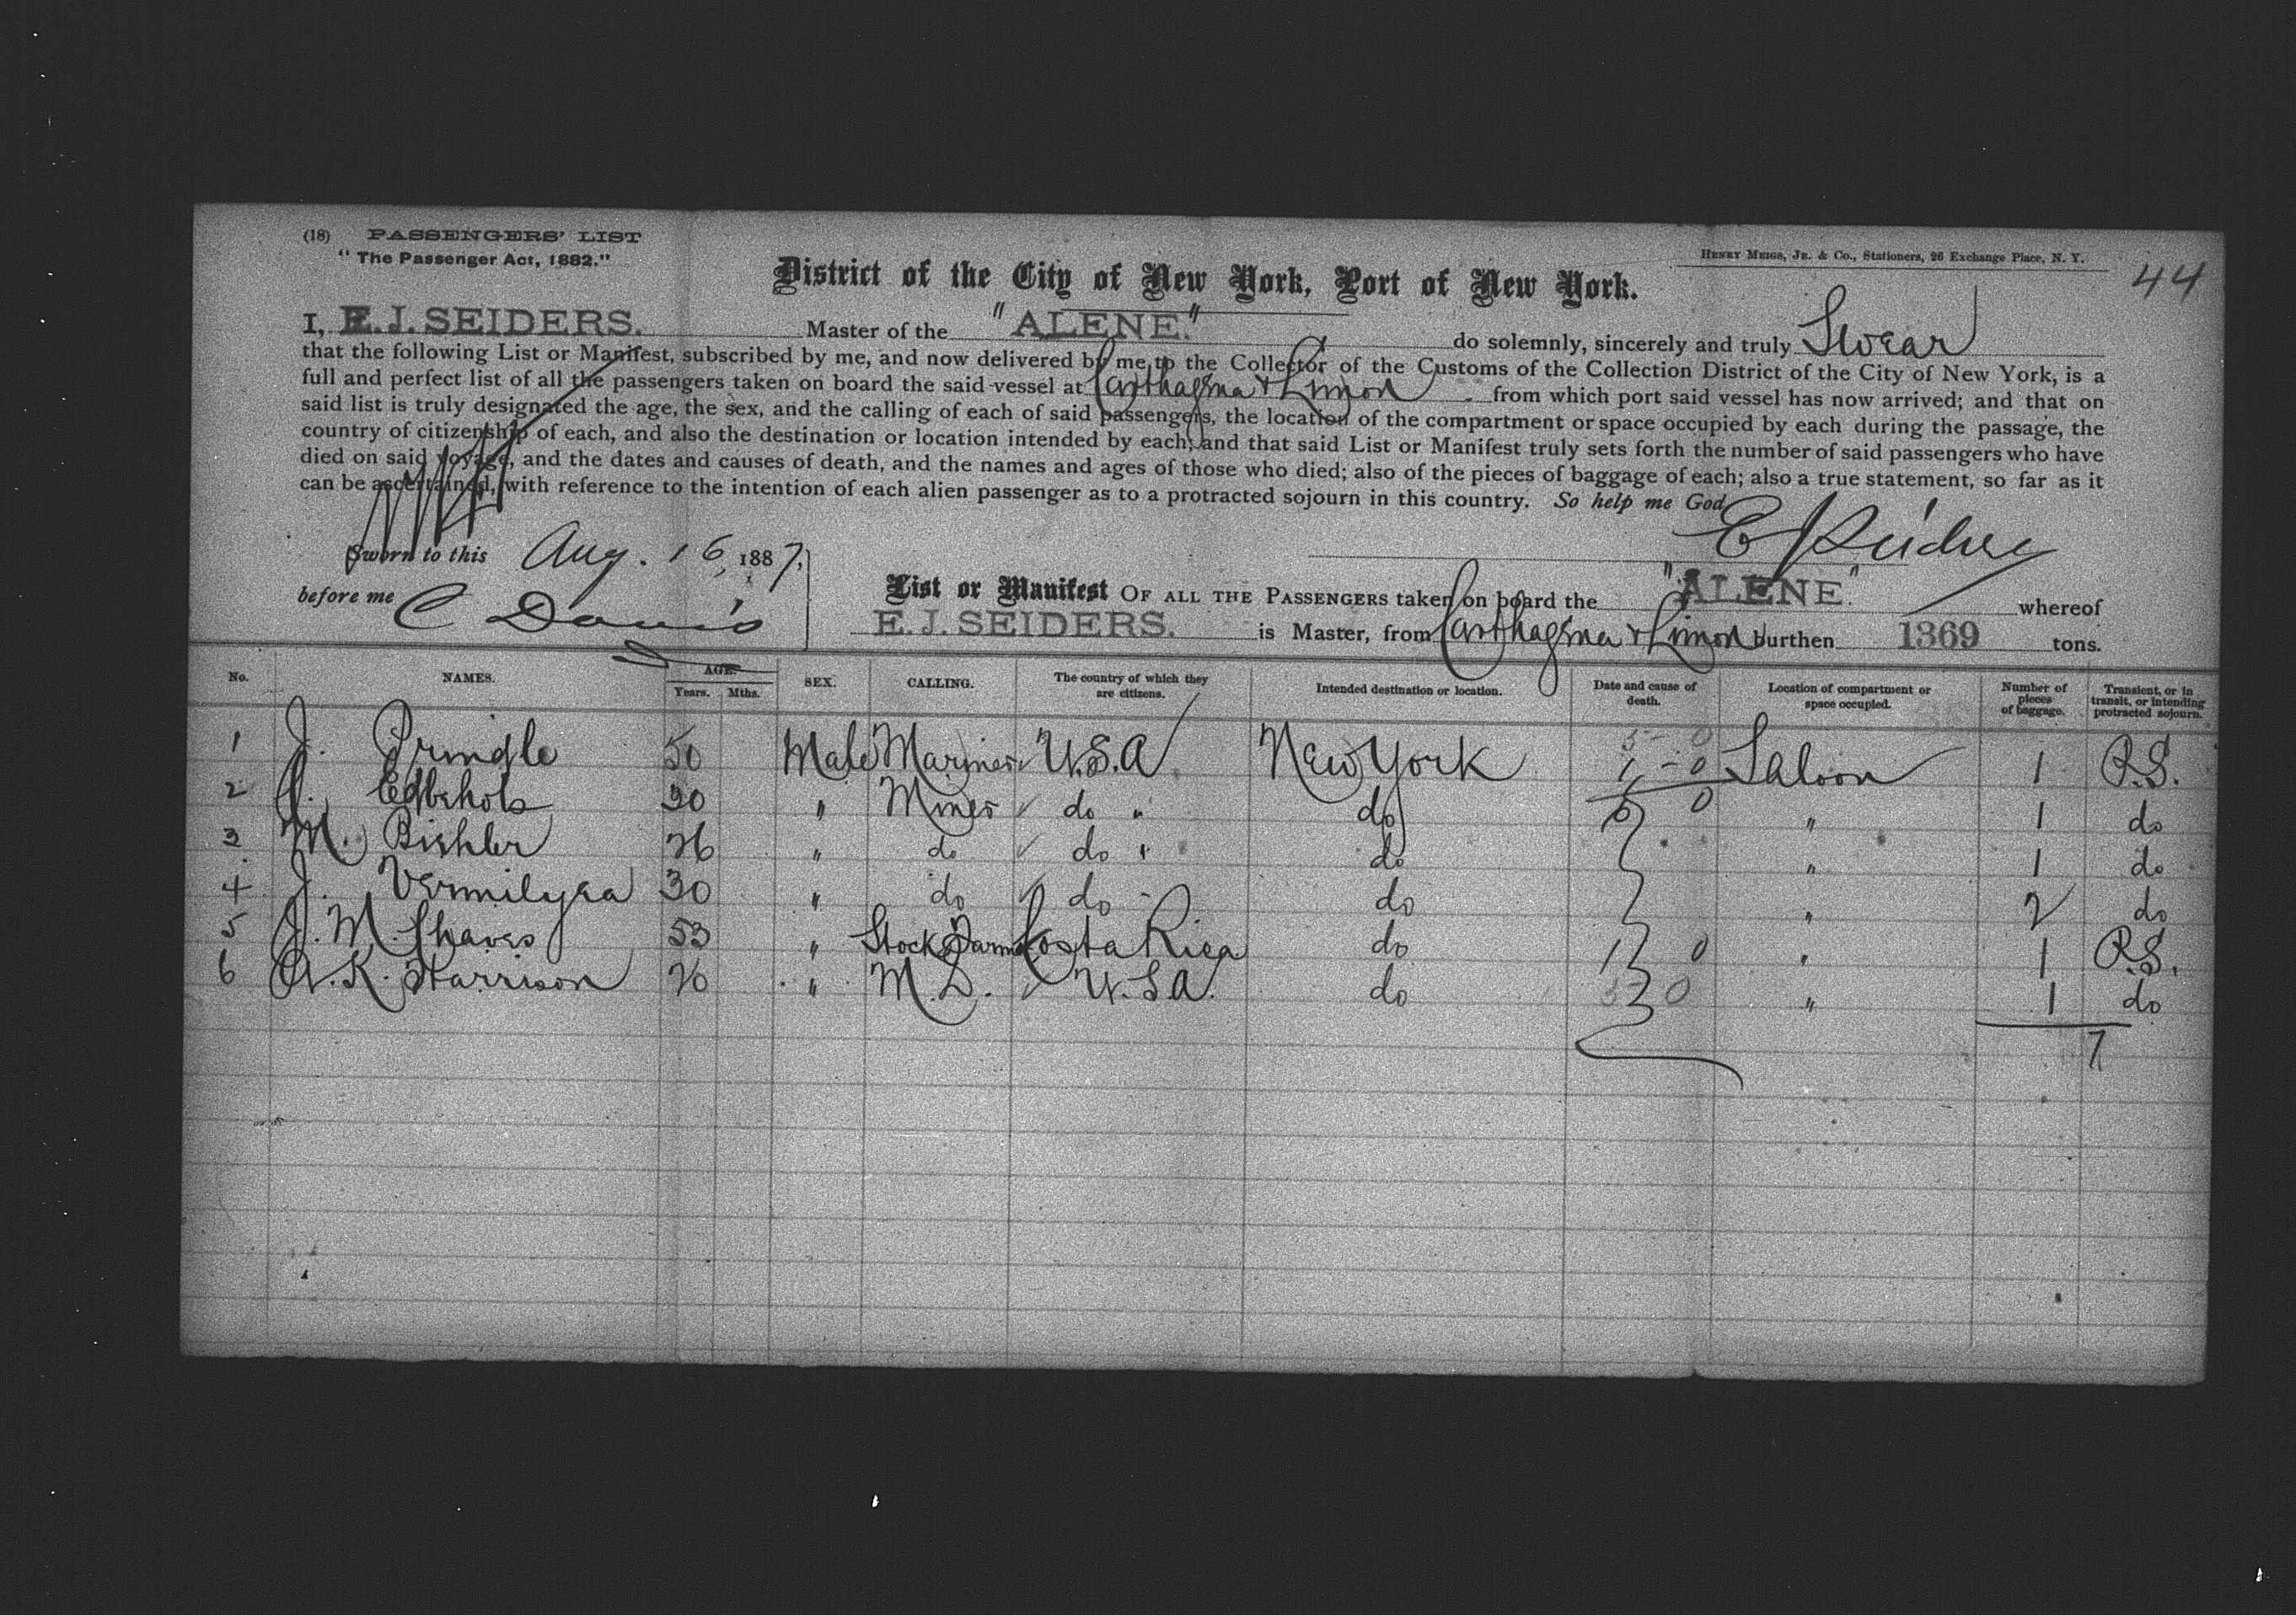 (18) PASSENGERS' LIST
"The Passenger Act, 1882."
HENRY MEIGS, JR. & Co., Stationers, 26 Exchange Place, N. Y.
44
District of the City of New York, Port of New York.
I, E. J. SEIDERS. Master of the "ALENE." do solemnly, sincerely and truly Swear
that the following List or Manifest, subscribed by me, and now delivered by me to the Collector of the Customs of the Collection District of the City of New York, is a
full and perfect list of all the passengers taken on board the said vessel at Carthagena & Limon from which port said vessel has now arrived; and that on
said list is truly designated the age, the sex, and the calling of each of said passengers, the location of the compartment or space occupied by each during the passage, the
country of citizenship of each, and also the destination or location intended by each; and that said List or Manifest truly sets forth the number of said passengers who have
died on said voyage, and the dates and causes of death, and the names and ages of those who died; also of the pieces of baggage of each; also a true statement, so far as it
can be ascertained, with reference to the intention of each alien passenger as to a protracted sojourn in this country. So help me God
Sworn to this Aug. 16, 1887, E J Seiders
before me C Davis
List or Manifest OF ALL THE PASSENGERS taken on board the "ALENE." whereof
E. J. SEIDERS. is Master, from Carthagena & Limon burthen 1369 tons.
No. NAMES. AGE. Years. Mths. SEX. CALLING. The country of which they are citizens. Intended destination or location. Date and cause of death. Location of compartment or space occupied. Number of pieces of baggage. Transient, or in transit, or intending protracted sojourn.
1 J. Pringle 50 Male Mariner U.S.A New York Saloon 1 P.S.
2 J. 30 " Miner do " do " 1 do
3 M. Bishler 26 " do do " do " 1 do
4 J. Vermilyea 30 " do do " do " 2 do
5 J. M. Chaves 53 " Stock Farmer Costa Rica do " 1 P.S.
6 A. K. Harrison 26 " M.D. U.S.A. do " 1 do
7